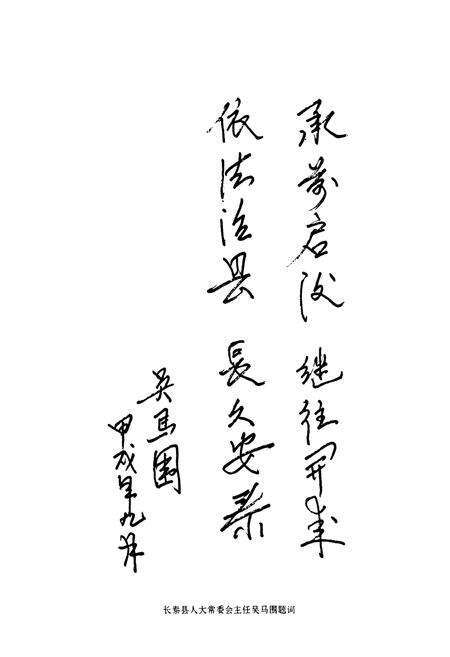 承前启后 继往开来
依法治县 長久安泰
吴马围
甲戌年九月
长泰县人大常委会主任吴马围题词